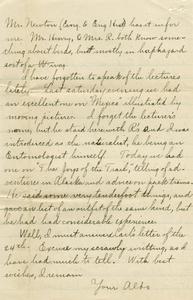 Mr. Newton (Lang. & Eng Hist) has it in for
me. Mr. Henry, & Mrs. R. both know some-
thing about birds, but mostly in haphazard
sort of a way.
I have forgotten to speak of the lectures
lately. Last Saturday evening we had
an excellent one on Mexico illustrated by
moving pictures. I forget the lecturer's
name, but he had been with Ro and I was
introduced as the naturalist, he being an
Entomologist himself. Today we had
one on "The Joys of the Trail," telling of ad-
venture in Alaska and advice on pack trains.
He said some very tenderfoot things, and
gave a list of an outfit of the same kind, but
he had had considerable experience.
Well, I must answer Carl's letter of the
24th. Excuse my scrawly writing, as I
have had much to tell. With best
wishes, I remain
Your Aldo